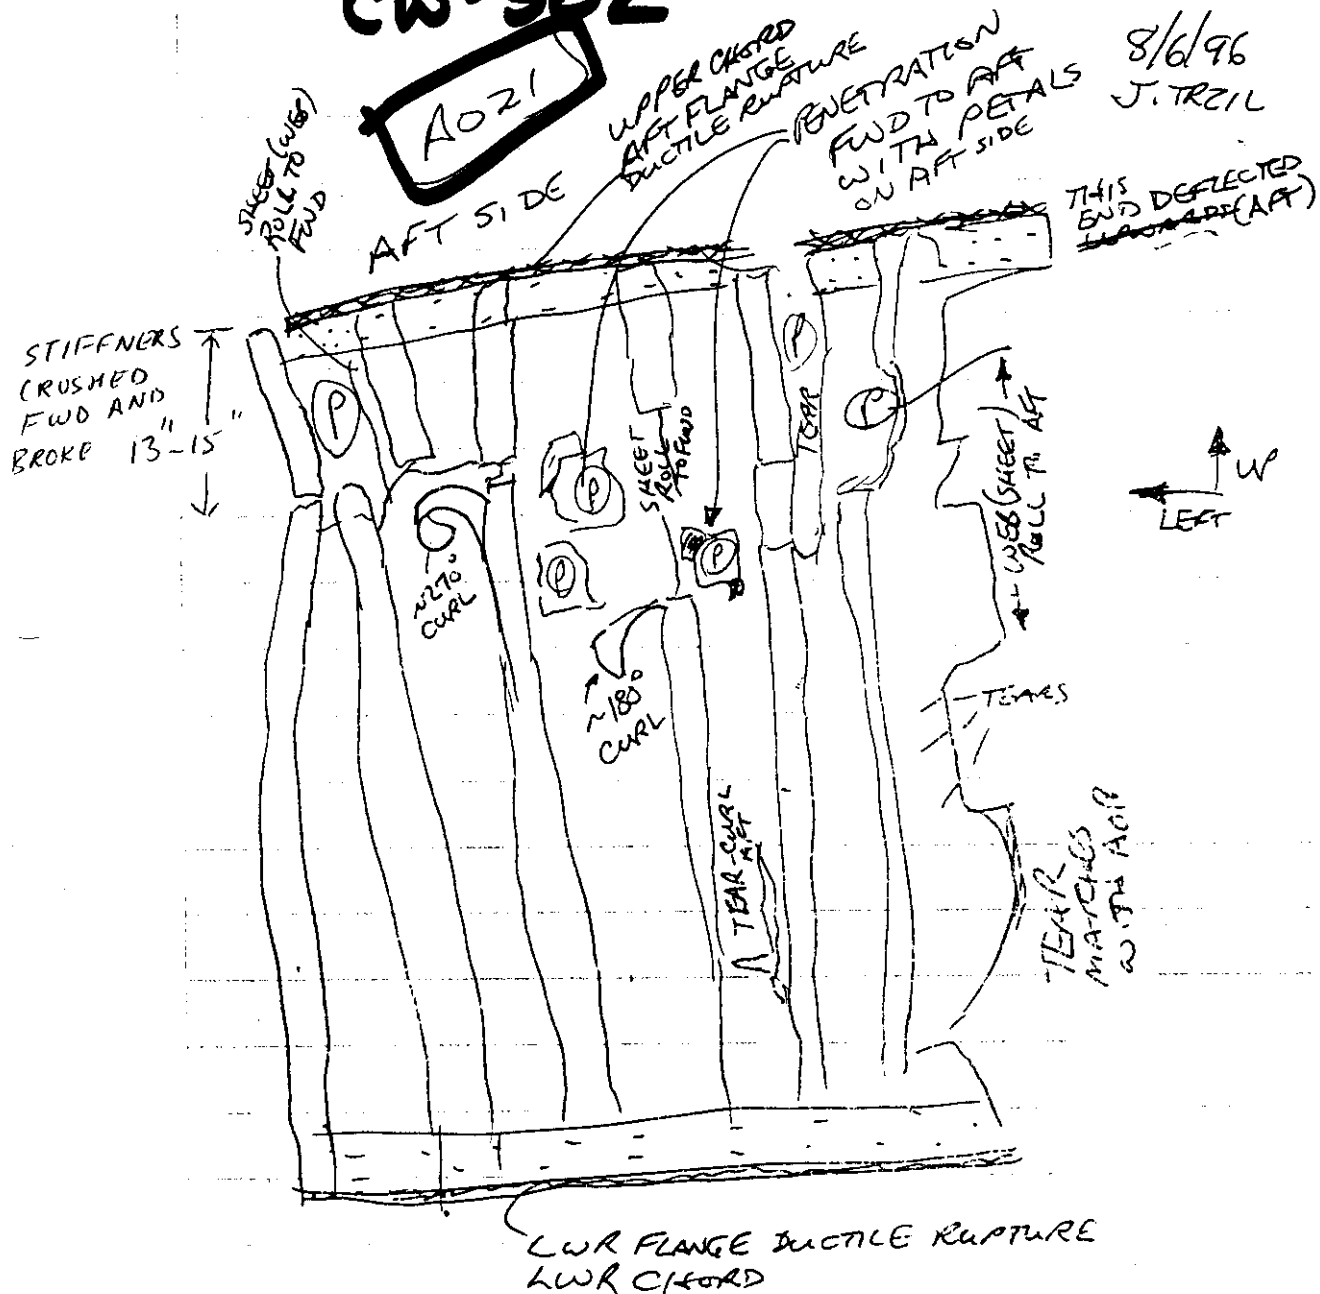 CW-502
A021
AFT SIDE
SHEET (WEB)
ROLL TO
FWD
UPPER CHORD
AFT FLANGE
DUCTILE RUPTURE
PENETRATION
FWD TO AFT
WITH PETALS
ON AFT SIDE
8/6/96
J. TRZIL
THIS
END DEFLECTED
(AFT)
STIFFNERS
CRUSHED
FWD AND
BROKE 13"-15"
P
P
P
P
P
P
TEAR
SHEET
ROLL
TO FWD
WEB (SHEET)
ROLL TO AFT
UP
LEFT
~270°
CURL
~180°
CURL
TEARS
TEAR-CURL
AFT
TEAR
MATCHES
WITH
LWR FLANGE DUCTILE RUPTURE
LWR CHORD